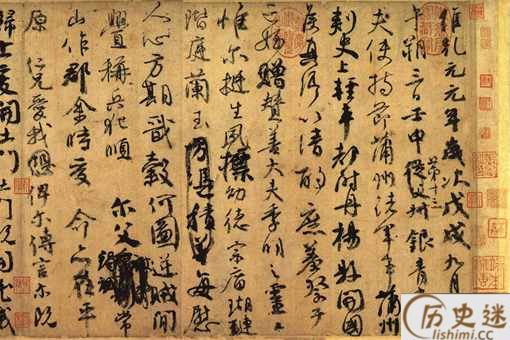 維乾元元年歲次戊戌九月
午朔三日壬申第十三從父叔銀青
夫使持節蒲州諸軍事蒲州
刺史上輕車都尉丹楊縣開國
侯真卿以清酌庶羞祭于
亡姪贈贊善大夫季明之靈曰
惟爾挺生夙標幼德宗廟瑚璉
階庭蘭玉方憑積善每慰
人心方期戩穀何圖逆賊閒
舋稱兵犯順爾父常
山作郡余時受命亦在平
原仁兄愛我俾爾傳言爾既
歸止爰開土門土門既開凶威
历史迷
lishimi.cc